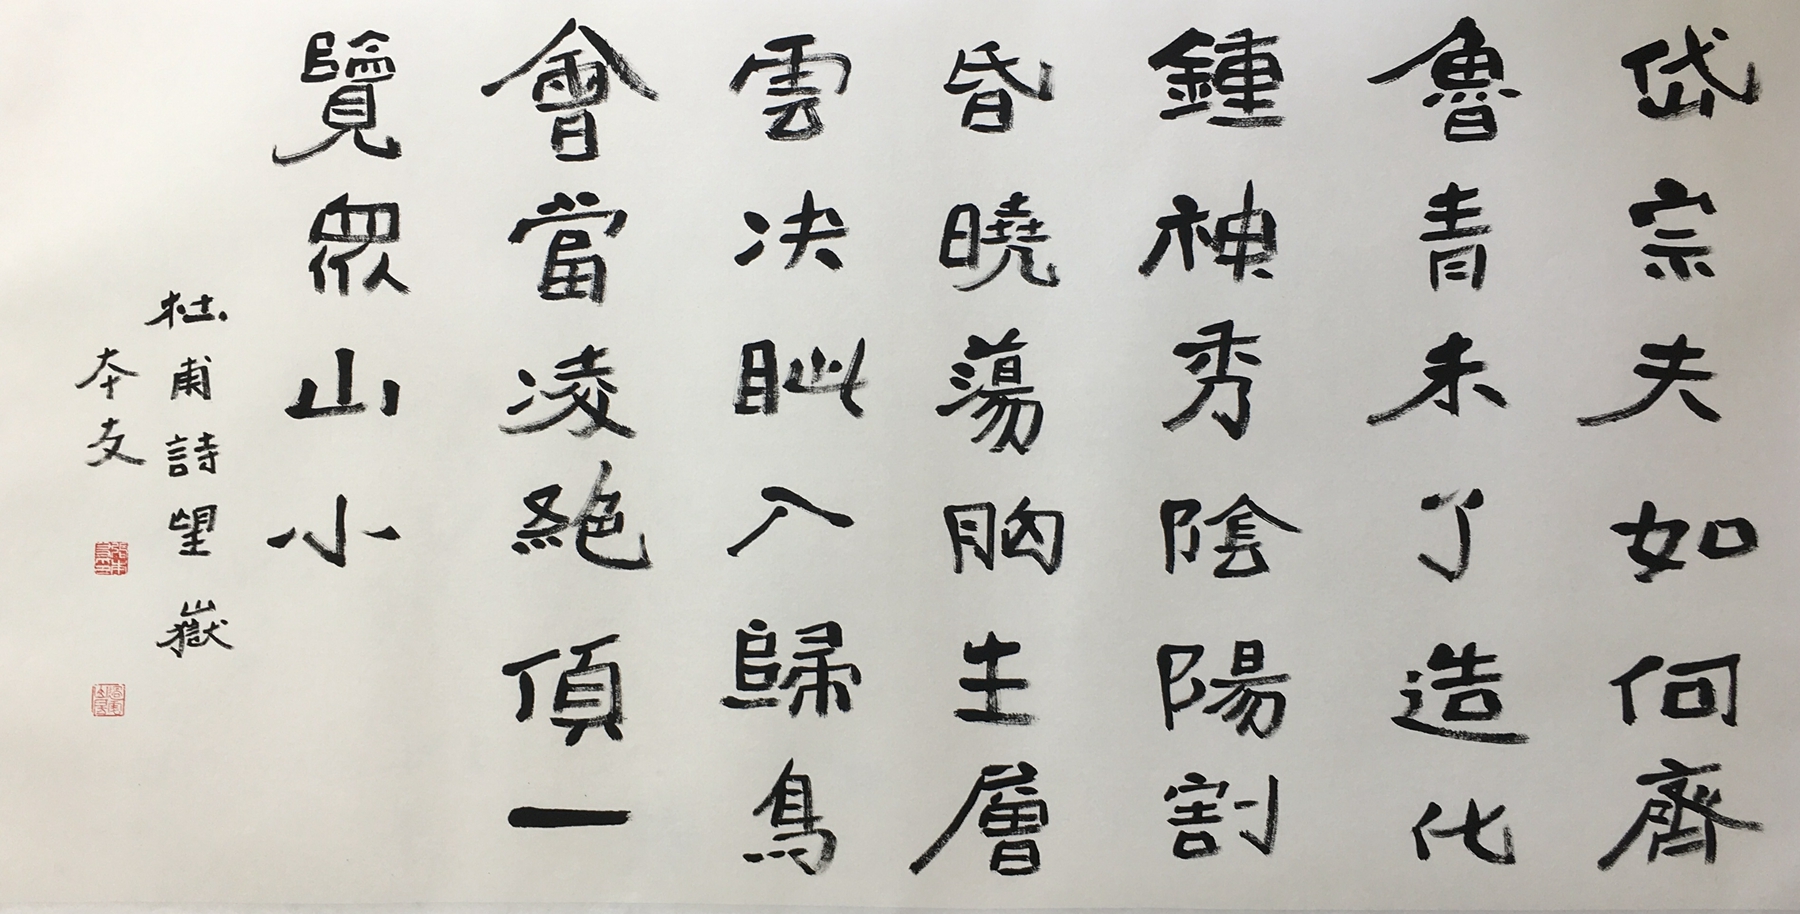 岱宗夫如何齊
魯青未了造化
鍾神秀陰陽割
昏曉蕩胸生層
雲决眦入歸鳥
會當凌絕頂一
覽眾山小
杜甫詩望嶽
本友